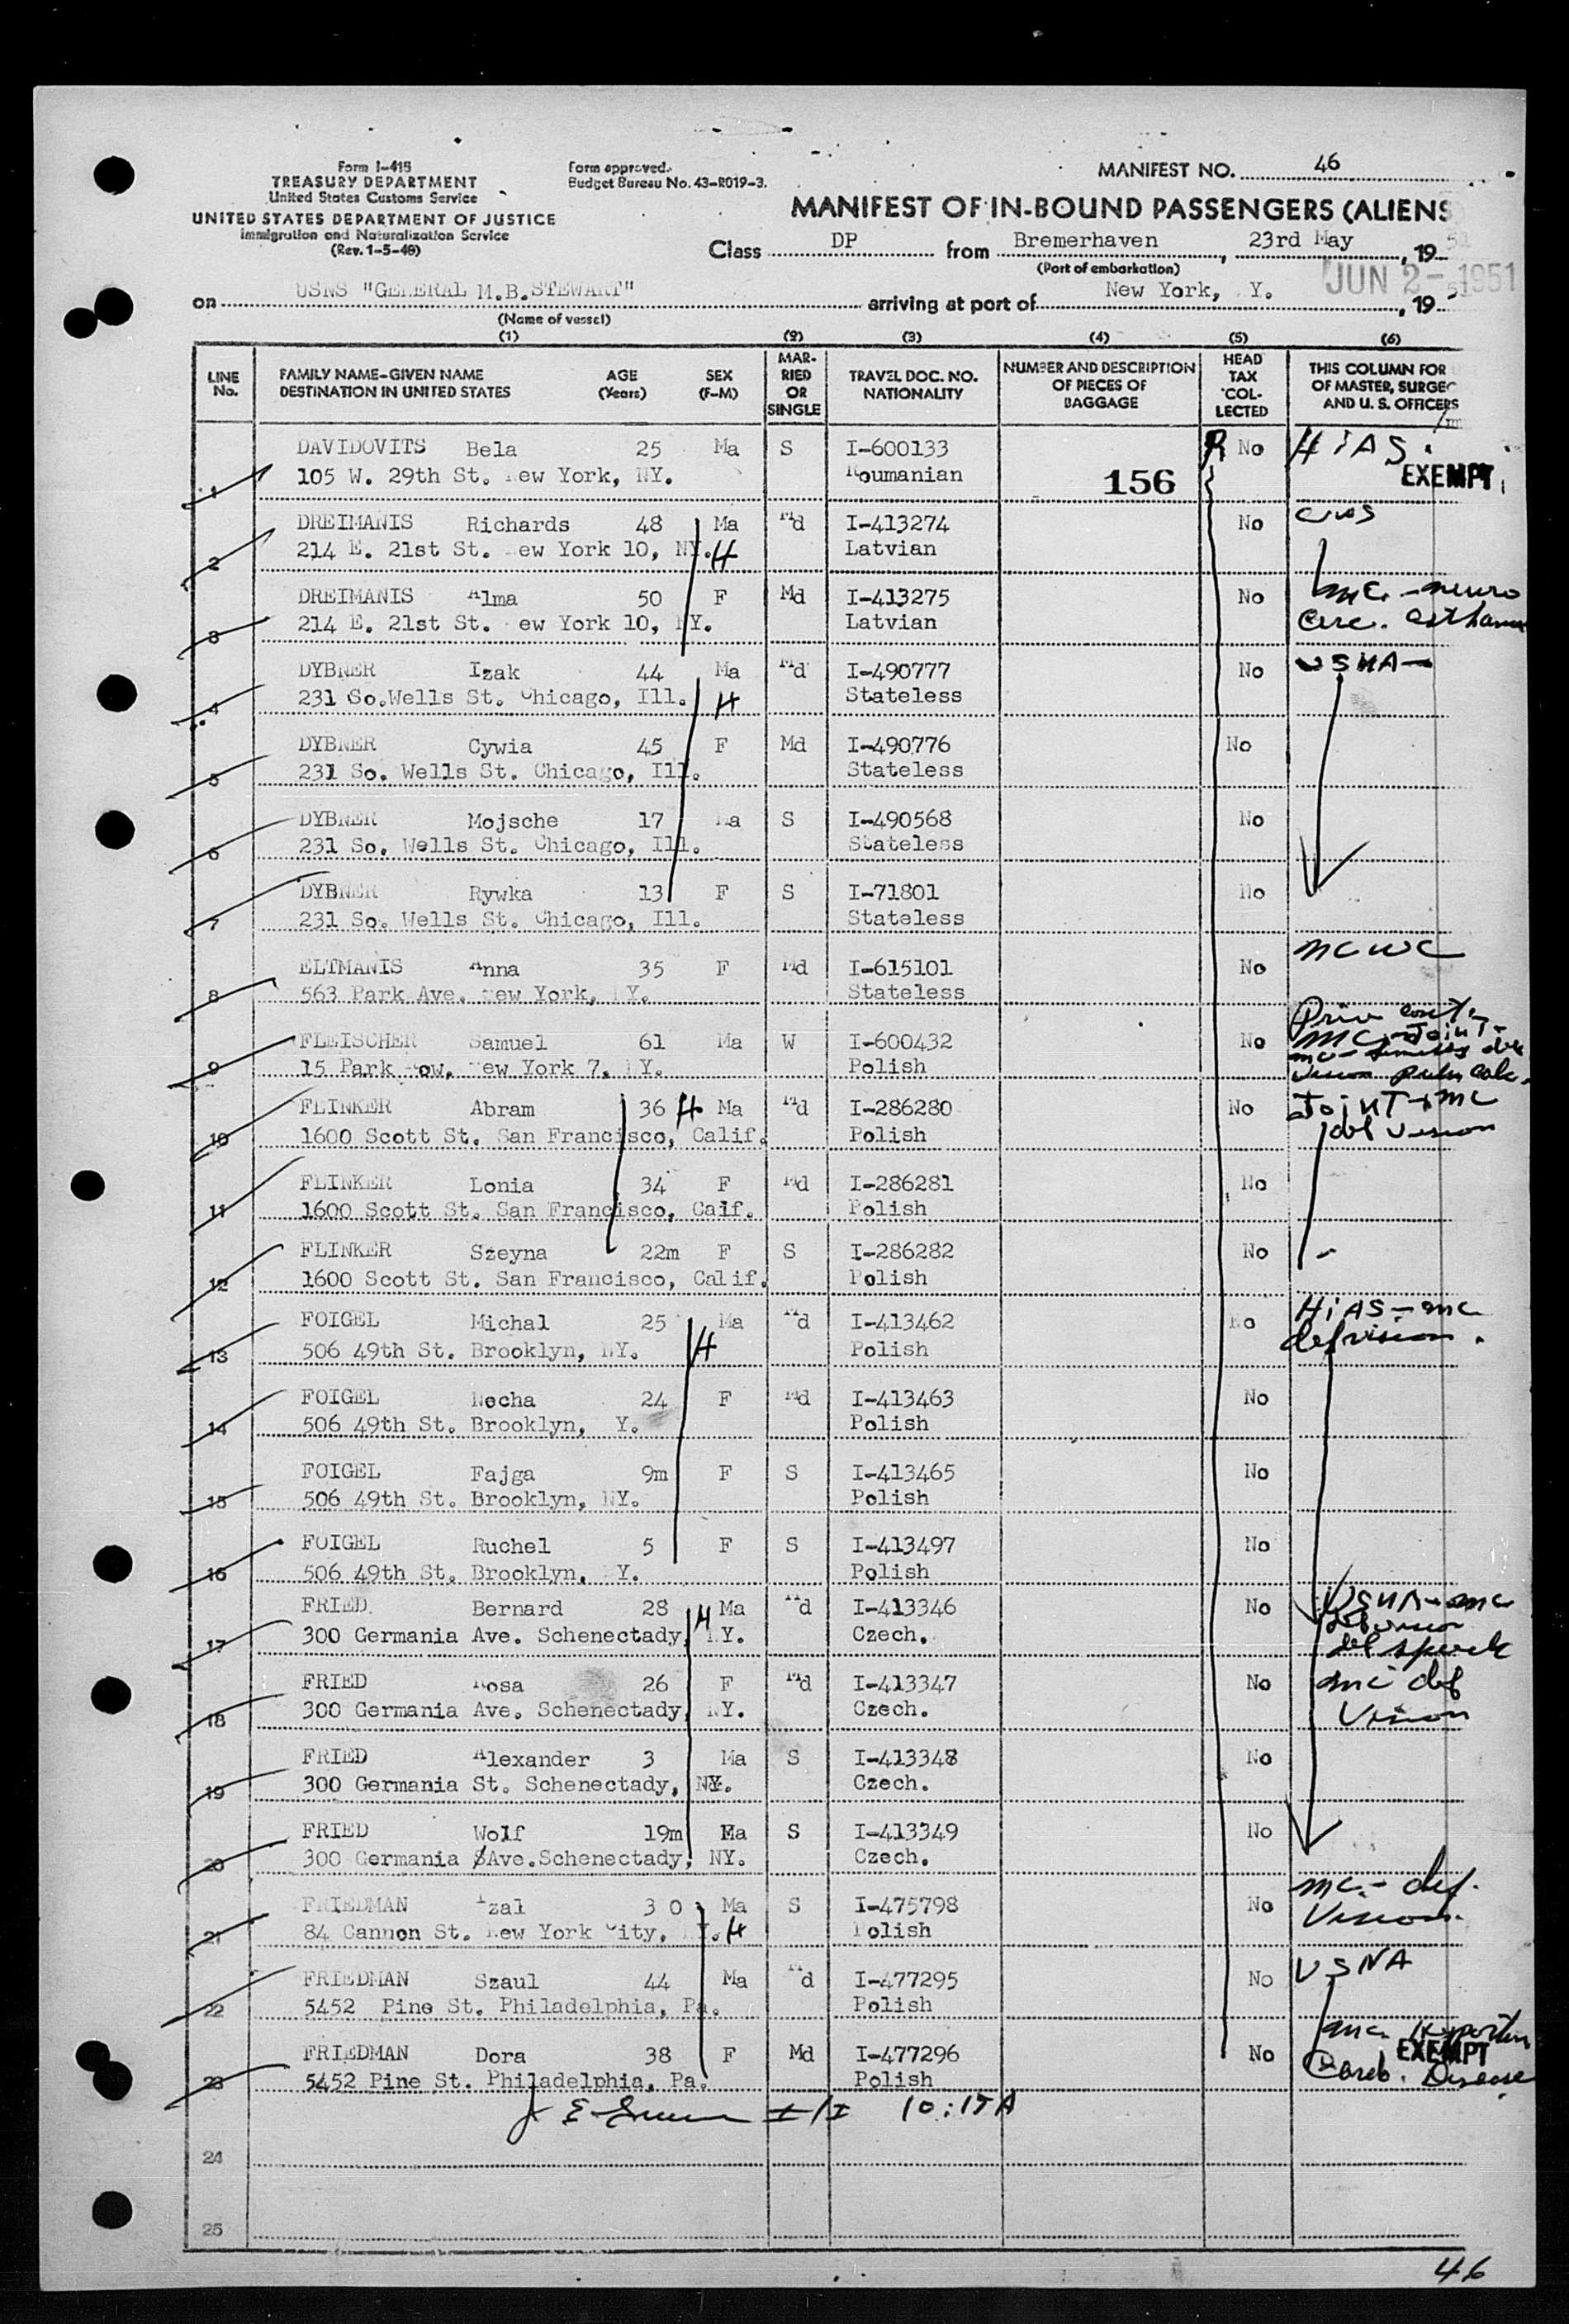 Form I-415
TREASURY DEPARTMENT
United States Customs Service
UNITED STATES DEPARTMENT OF JUSTICE
Immigration and Naturalization Service
(Rev. 1-5-49)
Form approved.
Budget Bureau No. 43-R019-3.
MANIFEST NO. 46
MANIFEST OF IN-BOUND PASSENGERS (ALIENS
Class DP from Bremerhaven, 23rd May, 1951
(Port of embarkation)
on USNS "GENERAL M.B.STEWART" arriving at port of New York, Y. JUN 2-1951, 19
(Name of vessel)
(1) (2) (3) (4) (5) (6)
LINE No. FAMILY NAME-GIVEN NAME DESTINATION IN UNITED STATES AGE (Years) SEX (F-M) MARRIED OR SINGLE TRAVEL DOC. NO. NATIONALITY NUMBER AND DESCRIPTION OF PIECES OF BAGGAGE HEAD TAX COLLECTED THIS COLUMN FOR OF MASTER, SURGEO AND U. S. OFFICERS
DAVIDOVITS Bela 25 Ma S I-600133 No HIAS.
1 105 W. 29th St. New York, NY. Roumanian 156 EXEMPT
DREIMANIS Richards 48 Ma Md I-413274 No CWS
2 214 E. 21st St. New York 10, NY. H Latvian
DREIMANIS Alma 50 F Md I-413275 No mc. - neuro
3 214 E. 21st St. New York 10, NY. Latvian Circ. asthenia
DYBNER Izak 44 Ma Md I-490777 No USNA-
4 231 So.Wells St. Chicago, Ill. H Stateless
DYBNER Cywia 45 F Md I-490776 No
5 231 So. Wells St. Chicago, Ill. Stateless
DYBNER Mojsche 17 Ma S I-490568 No
6 231 So. Wells St. Chicago, Ill. Stateless
DYBNER Rywka 13 F S I-71801 No
7 231 So. Wells St. Chicago, Ill. Stateless
ELTMANIS Anna 35 F Md I-615101 No NCWC
8 563 Park Ave. New York, NY. Stateless
FLEISCHER Samuel 61 Ma W I-600432 No Joint-
9 15 Park Row, New York 7, NY. Polish
FLINKER Abram 36 H Ma Md I-286280 No Joint-mc
10 1600 Scott St. San Francisco, Calif. Polish def vision
FLINKER Lonia 34 F Md I-286281 No
11 1600 Scott St. San Francisco, Caif. Polish
FLINKER Szeyna 22m F S I-286282 No
12 1600 Scott St. San Francisco, Calif. Polish
FOIGEL Michal 25 Ma Md I-413462 No HIAS-mc
13 506 49th St. Brooklyn, NY. H Polish def vision.
FOIGEL Necha 24 F Md I-413463 No
14 506 49th St. Brooklyn, Y. Polish
FOIGEL Fajga 9m F S I-413465 No
15 506 49th St. Brooklyn, NY. Polish
FOIGEL Ruchel 5 F S I-413497 No
16 506 49th St. Brooklyn, Y. Polish
FRIED Bernard 28 H Ma Md I-413346 No USNA-mc
17 300 Germania Ave. Schenectady, NY. Czech. def vision
FRIED Rosa 26 F Md I-413347 No mc def
18 300 Germania Ave. Schenectady, NY. Czech. Vision
FRIED Alexander 3 Ma S I-413348 No
19 300 Germania St. Schenectady, NY. Czech.
FRIED Wolf 19m Ma S I-413349 No
20 300 Germania Ave.Schenectady, NY. Czech.
FRIEDMAN Izal 30 Ma S I-475798 No mc.- def.
21 84 Cannon St. New York City, NY. H Polish Vision.
FRIEDMAN Szaul 44 Ma Md I-477295 No USNA
22 5452 Pine St. Philadelphia, Pa. Polish
FRIEDMAN Dora 38 F Md I-477296 No EXEMPT
23 5452 Pine St. Philadelphia, Pa. Polish Disease
10:15A
24
25
46